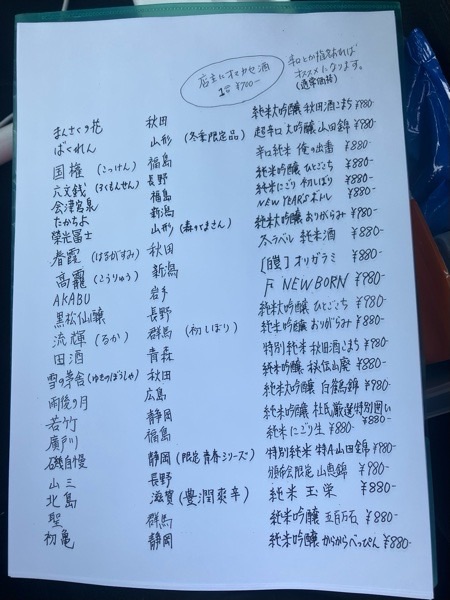 店主におまかせ酒
1合 ¥700-
和とか指名あれば
オススメになります。
(通常価格)
まんさくの花 秋田 純米大吟醸 秋田酒こまち ¥880-
ばくれん 山形 (冬季限定品) 超辛口 大吟醸 山田錦 ¥880-
国権 (こっけん) 福島 辛口純米 俺の出番 ¥880-
六文銭 (ろくもんせん) 長野 純米吟醸 ひとごこち ¥880-
会津宮泉 福島 純米にごり 初しぼり ¥880-
たかちよ 新潟 NEW YEARSボトル ¥880-
榮光冨士 山形 (森のくまさん) 純米大吟醸 おりがらみ ¥980-
春霞 (はるがすみ) 秋田 ラベル 純米酒 ¥880-
高龗 (こうりゅう) 新潟 オリガラミ ¥880-
AKABU 岩手 F NEWBORN ¥980-
黒松仙醸 長野 純米大吟醸 ひとごこち ¥980-
流輝 (るか) 群馬 (初しぼり) 純米吟醸 おりがらみ ¥880-
田酒 青森 特別純米 秋田酒こまち ¥980-
雪の茅舎 (ゆきのぼうしゃ) 秋田 純米吟醸 秘伝山廃 ¥880-
雨後の月 広島 純米大吟醸 白鶴錦 ¥880-
若竹 静岡 純米吟醸 杜氏厳選特別囲い ¥880-
廣戸川 福島 純米にごり生 ¥880-
磯自慢 静岡 (限定 青春シリーズ) 特別純米 特A山田錦 ¥880-
山三 長野 頒布会限定 山恵錦 ¥980-
北島 滋賀 (豊潤爽辛) 純米 玉栄 ¥880-
聖 群馬 純米吟醸 五百万石 ¥880-
初亀 静岡 純米吟醸 からからべっぴん ¥880-